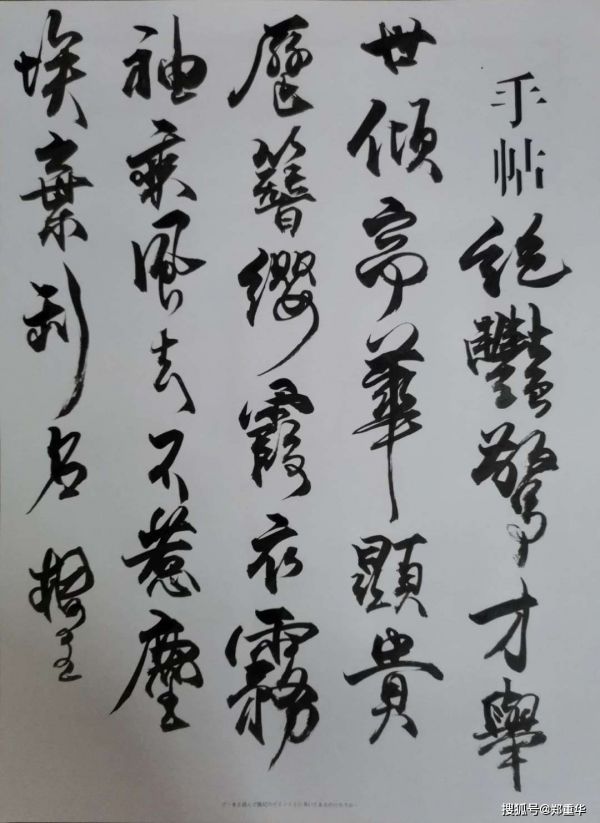 手帖絶艷驚才舉
世傾高華顯貴
歷簪纓霞衣霧
袖乘風去不惹塵
埃棄利名
搜狐号@郑重华